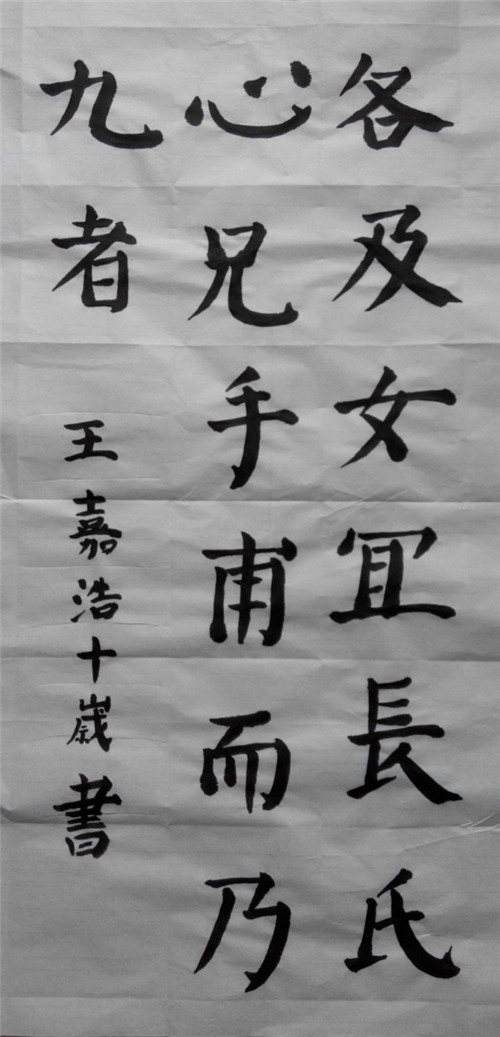 各及女宜長氏
心兄手甫而乃
九者
王嘉浩十歲書